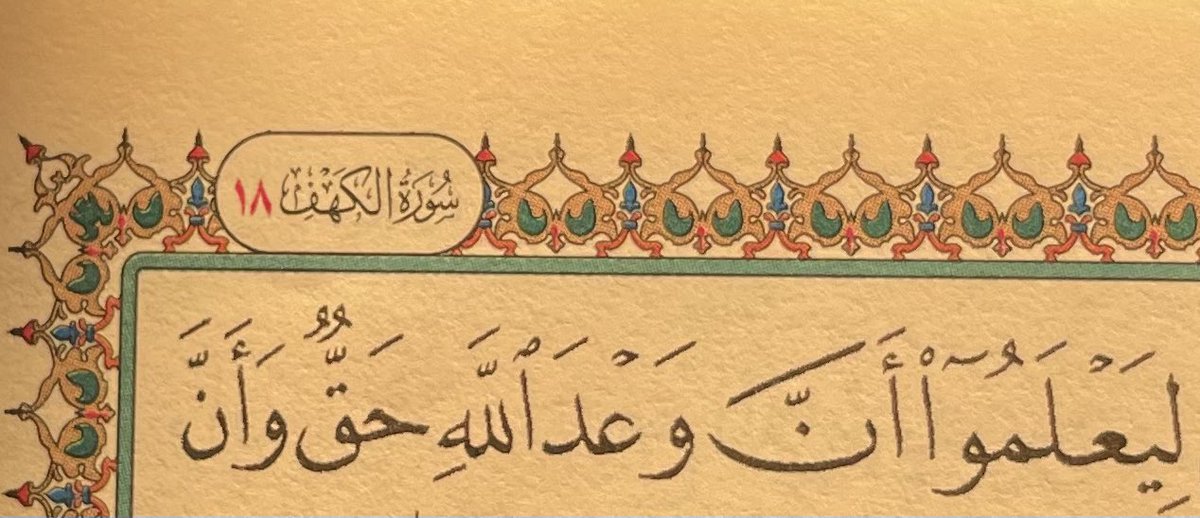 سُورَةُ الكَهْفِ ١٨
لِيَعْلَمُوٓا۟ أَنَّ وَعْدَ ٱللَّهِ حَقٌّ وَأَنَّ